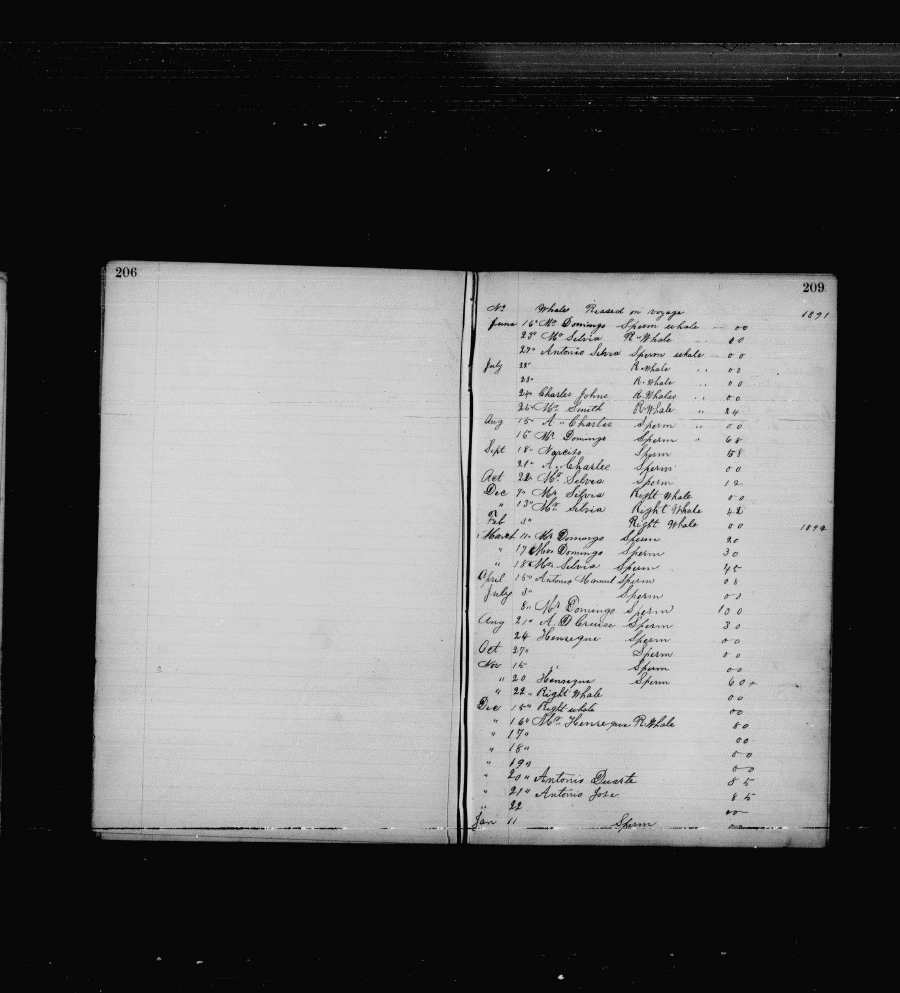 206
209
No Whales Rissed on voyage 1891
June 16" Mr Domingo Sperm whale 00
23" Mr Silvia R" Whale 00
29" Antonio Silvia Sperm whale 00
July 22" R. Whale " 00
23" R. Whale " 00
24" Charles Johns R. Whales " 00
25" Mr. Smith R. Whale " 24
Aug 15" A " Charles Sperm " 00
16" Mr Domingo Sperm " 68
Sept 18" Narciso Sperm 58
21" A. Charles Sperm 00
Oct 22" Mr. Silvia Sperm 12
Dec 7" Mr Silvia Right Whale 00
" 13" Mr. Silvia Right Whale 42
Feb 3" Right Whale 00 1892
March 11" Mr Domingo Sperm 20
" 17 Mr Domingo Sperm 30
" 18 Mr. Silvia Sperm 45
April 15" Antonio Manuel Sperm 08
July 3" Sperm 00
8" Mr Domingo Sperm 100
Aug 21" A. D Cruise Sperm 30
24 Henreque Sperm 00
Oct 27" Sperm 00
Nov 15 " Sperm 00
" 20 Henreque Sperm 60
" 22" Right Whale 00
Dec 15" Right whale 00
" 16" Mr. Henreque R. Whale 80
" 17" 00
" 18" 00
" 19" 00
" 20" Antonio Duarte 85
" 21" Antonio Jose 85
" 22 00
Jan 11 Sperm 00